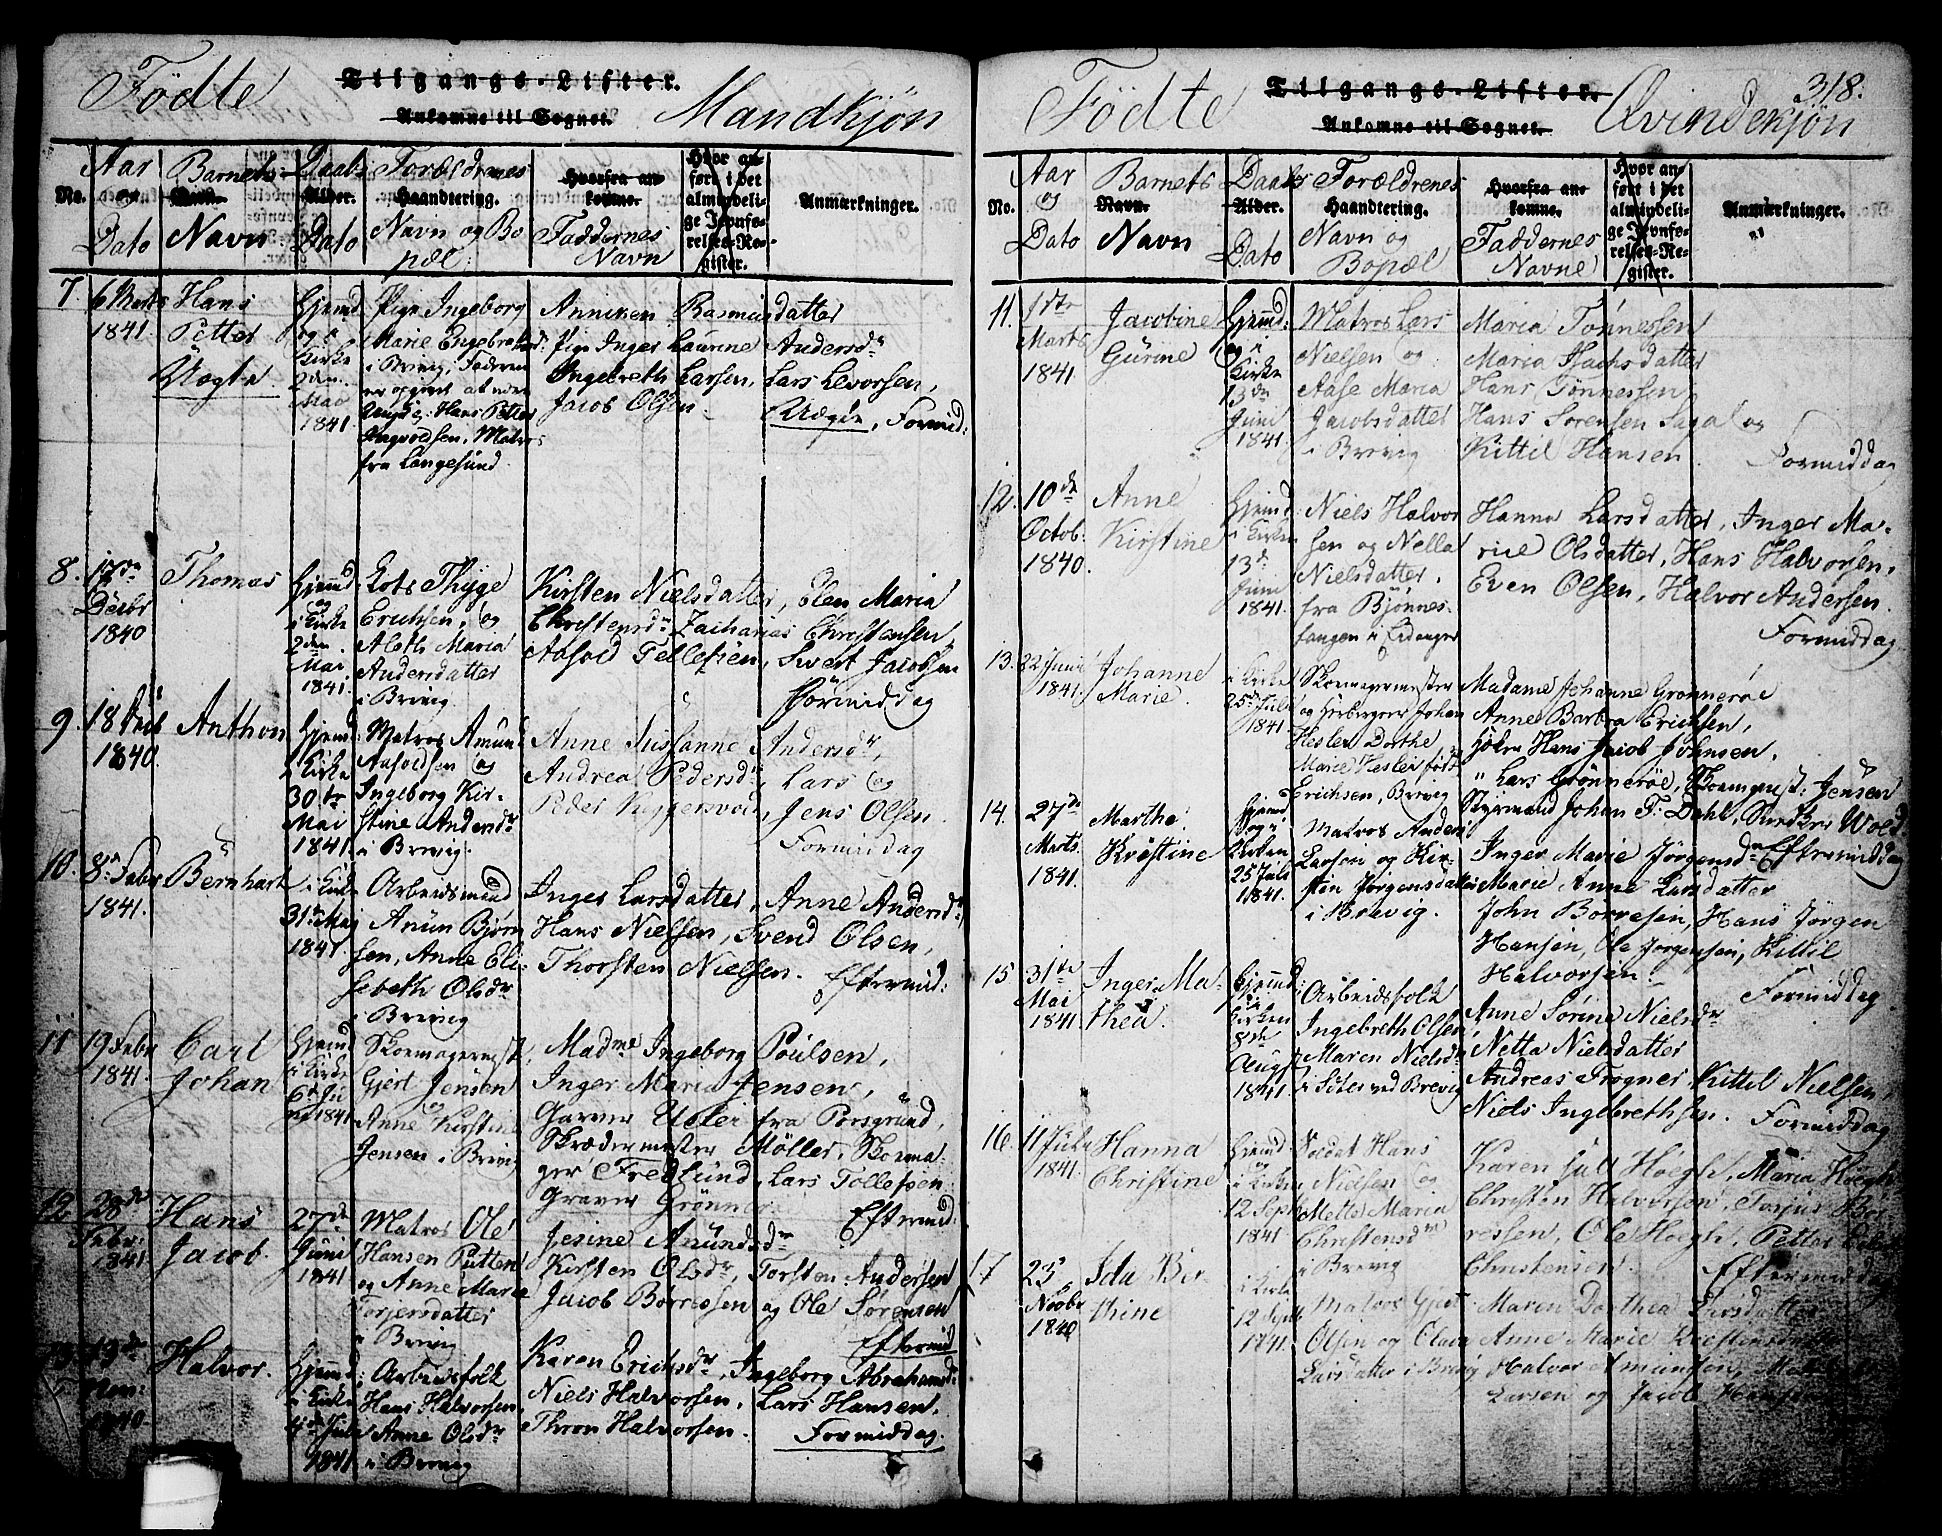 Födte
Tilgangs-Lister.
Ankomne til Sognet.
Mandkjön
No.
Aar og Dato
Barnets Navn
Daabs Alder. Dato
Forældrenes Haandtering. Navn og Bopæl:
Hvorfra ankomne. Faddernes Navn
Hvor anført i det almindelige Jevnførelses-Register.
Anmærkninger.
7. 6 Marts 1841.
Hans
Petter
Uægte
Hjemd:
og i
Kirke
2den
Mai
1841.
Pige Ingeborg
Marie
i Brevig, Faderen
er opgivet at være
Hans Petter
Ingvoldsen, Matros
fra Langesund.
Anniken Rasmusdatter
Pige Inger Laurine Andersdr
Ingebreth Larsen, Lars Levorsen,
Jacob Olsen.
Uægte, Formid:
8. 17de Decbr 1840
Thomas
Hjemd
og
i Kirke
2den
Mai
1841.
Lots Thyge
Erichsen, og
Maria
Andersdatter
i Brevig
Kirsten Nielsdatter, Elen Maria
Christensdr Zacharias Christensen,
Aasold Tellefsen, Jacobsen
Formiddag
9. 18 1840.
Anthon
Hjemd:
i Kirke
30te
Mai
1841
Matros Amund
Aasoldsen og
Ingeborg Kir-
stine Andersdr
i Brevig
Anne Susanne Andersdr,
Andrea Pedersdr, Lars og
Peder Jens Olsen.
Formiddag
10. 8de Febr 1841.
Bernhart
i Kirke
31te Mai
1841
Arbeidsmand
Anun Bjørn
sen, Anne Eli-
sebeth Olsdr
i Brevig
Inger Larsdatter, Anne Andersdr,
Hans Nielsen, Svend Olsen,
Thorsten Nielsen.
Eftermid:
11 19 Febr 1841.
Carl
Johan
Hjemd
i Kirke
6te Ju
ni 1841
Skoemagermest:
Gjert Jensen
og
Anne Kirstine
Jensen i Brevig
Madme Ingeborg Poulsen,
Inger Maria Jensen,
Garver fra Porsgrund,
Skrædermester Møller, Skoema-
ger Fredlund, Lars Tollefsen
Graver
Eftermid:
12 28de Febr: 1841
Hans
Jacob.
27de
Juni
1841
Matros Ole
Hansen Putten
og Anne Marie
Torjersdatter
i Brevig
Jesine Amundsdr
Kirsten Olsdr, Torsten Andersen
Jacob Borresen og Ole Sørensen
Eftermid
13 19de 1840
Halvor.
Hjemd:
i Kirke
4de Juli
1841
Arbeidsfolk
Hans Halvorsen,
Anne Olsdr
i Brevig
Karen Erichsdr, Ingeborg Abrahamsdr
Niels Halvorsen, Lars Hansen,
Thron Halvorsen.
Formiddag.
Födte
Tilgangs-Lister.
Ankomne til Sognet.
Qvindekjön
318.
No.
Aar og Dato
Barnets Navn
Daabs Alder. Dato
Forældrenes Haandtering. Navn og Bopæl
Hvorfra ankomne. Faddernes Navne
Hvor anført i det almindelige Jevnførelses-Register.
Anmærkninger.
11. 1ste Marts 1841
Jacobine
Gurine
Hjemd:
og i
Kirke
13de
Juni
1841.
Matros Lars
Nielsen og
Aase Maria
Jacobsdatter
i Brevig
Maria Tönnessen
Maria Isachsdatter
Hans Tönnessen,
Hans Sørensen Saga og
Kittil Hansen.
Formiddag
12. 10de Octob. 1840.
Anne
Kirstine
Hjemd
i Kirken
13de
Juni
1841.
Niels Halvor
sen og Nella
Nielsdatter.
fra Bjønnes-
tangen i Eidanger
Hanna Larsdatter, Inger Ma-
rie Olsdatter, Hans Halvorsen,
Even Olsen, Halvor Andersen.
Formiddag
13. 22 Juni 1841.
Johanne
Marie.
i Kirke
25de Juli
1841
Skoemagermester
og Johan
Hesler Dorthe
Marie Hesler født
Erichsen, Brevig
Madame Johanne Grønnerøe
Anne Barbra Erichsen,
Hans Jacob Johnsen,
" Lars Grønnerøe, Skoemgmst: Jensen
Styrmand Johan F. Dahl, Wold
Eftermiddag
14. 27de Marts 1841.
Marthe
Kristine
Hjemd:
og i
Kirken
25 Juli
1841.
Matros Anders
Larsen og Kir-
sten Jørgensdatter
i Brevig.
Inger Marie Jørgensdr
Marie Anne Larsdatter
John Borresen, Hans Jørgen
Hansen, Ole Jørgensen, Kittil
Halvorsen.
Formiddag
15. 31te Mai 1841
Inger Ma-
thea.
Hjemd:
i
Kirken
8de
August
1841
Arbeidsfolk
Ingebreth Olsen
Maren Nielsdr
i ved Brevig
Anne Sørine Nielsdr
Netta Nielsdatter
Andreas Trogner Kittil Nielsen
Niels Ingebrethsen. Formiddag
16. 11 Juli 1841.
Hanna
Christine
Hjemd
og
i Kirken
12 Septb
1841
Soldat Hans
Nielsen og
Mette Maria
Christensdr
i Brevig
Karen Høegh, Maria Høegh
Christen Halvorsen, Torjus Bor-
ressen, Ole Høegh, Petter
Christensen.
Eftermiddag
17 23de Novbr 1840
Ida Ber-
thine
i Kirke
12 Septb
1841.
Matros Gjert
Olsen og Olava
Larsdatter i Brevig
Maren Dorthea Larsdatter
Anne Marie Kristensdatter
Halvor Amundsen,
Larsen og Jacob Hansen